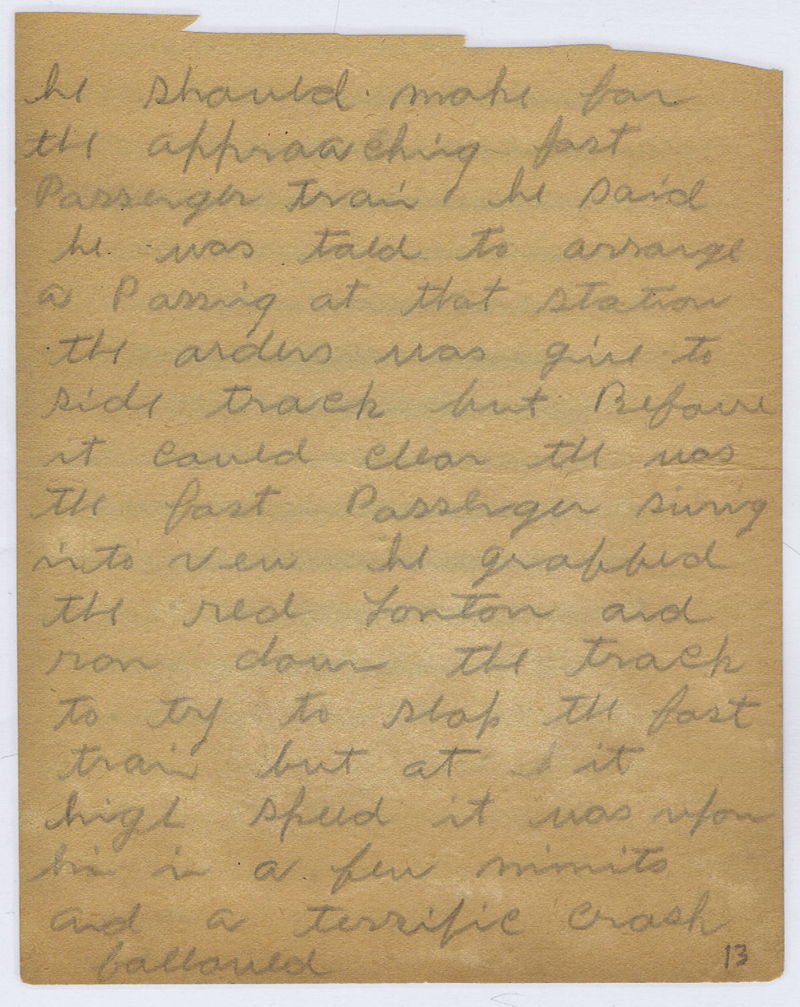 he should make for
the approaching fast
Passenger train he said
he was told to arrange
a Passing at that station
the orders was give to
side track but Before
it could clear the was
the fast Passenger swing
into veiw he grabbed
the red lonton and
ron down the track
to try to stop the fast
train but at it
high speed it was upon
him in a few minuits
and a terrific crash
followed
13